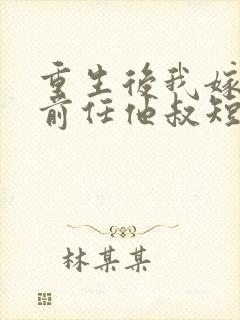 重生後我嫁
前任他叔短
林某某